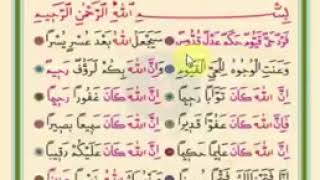 بِسْمِ اللهِ الرَّحْمٰنِ الرَّحِيْمِ
فَرْدٌ حَيٌّ قَيُّوْمٌ حَكَمٌ عَدْلٌ قُدُّوْسٌ سَيَجْعَلُ اللهُ بَعْدَ عُسْرٍ يُسْرًا
وَعَنَتِ الْوُجُوْهُ لِلْحَيِّ الْقَيُّوْمِ وَاِنَّ اللهَ بِكُمْ لَرَؤُفٌ رَحِيْمٌ
اِنَّ اللهَ كَانَ تَوَّابًا رَحِيْمًا اِنَّ اللهَ كَانَ غَفُوْرًا رَحِيْمًا
اِنَّ اللهَ كَانَ عَفُوًّا قَدِيْرًا اِنَّ اللهَ كَانَ سَمِيْعًا بَصِيْرًا
اِنَّ اللهَ كَانَ عَلِيْمًا حَكِيْمًا اِنَّ اللهَ كَانَ عَلَيْكُمْ رَقِيْبًا